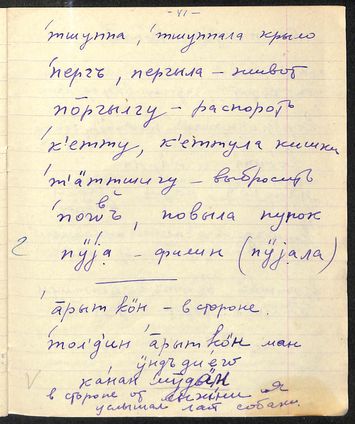 - 41 -
'тшуппа, 'тшуппала крыло
'перг̄ъ, пергыла - живот
по̄ргылгу - распороть
'к'е̄тту, к'е̄ттула кишки
'т'ӓттшигу - выбросить
повыла пупок
2 пӱjа - филин (пӱjала)
'а̄рыт кӧн - в стороне.
'а̄рыт кӧн ман
ӱндъдиего
канан
в стороне от я
услышал лай собаки.